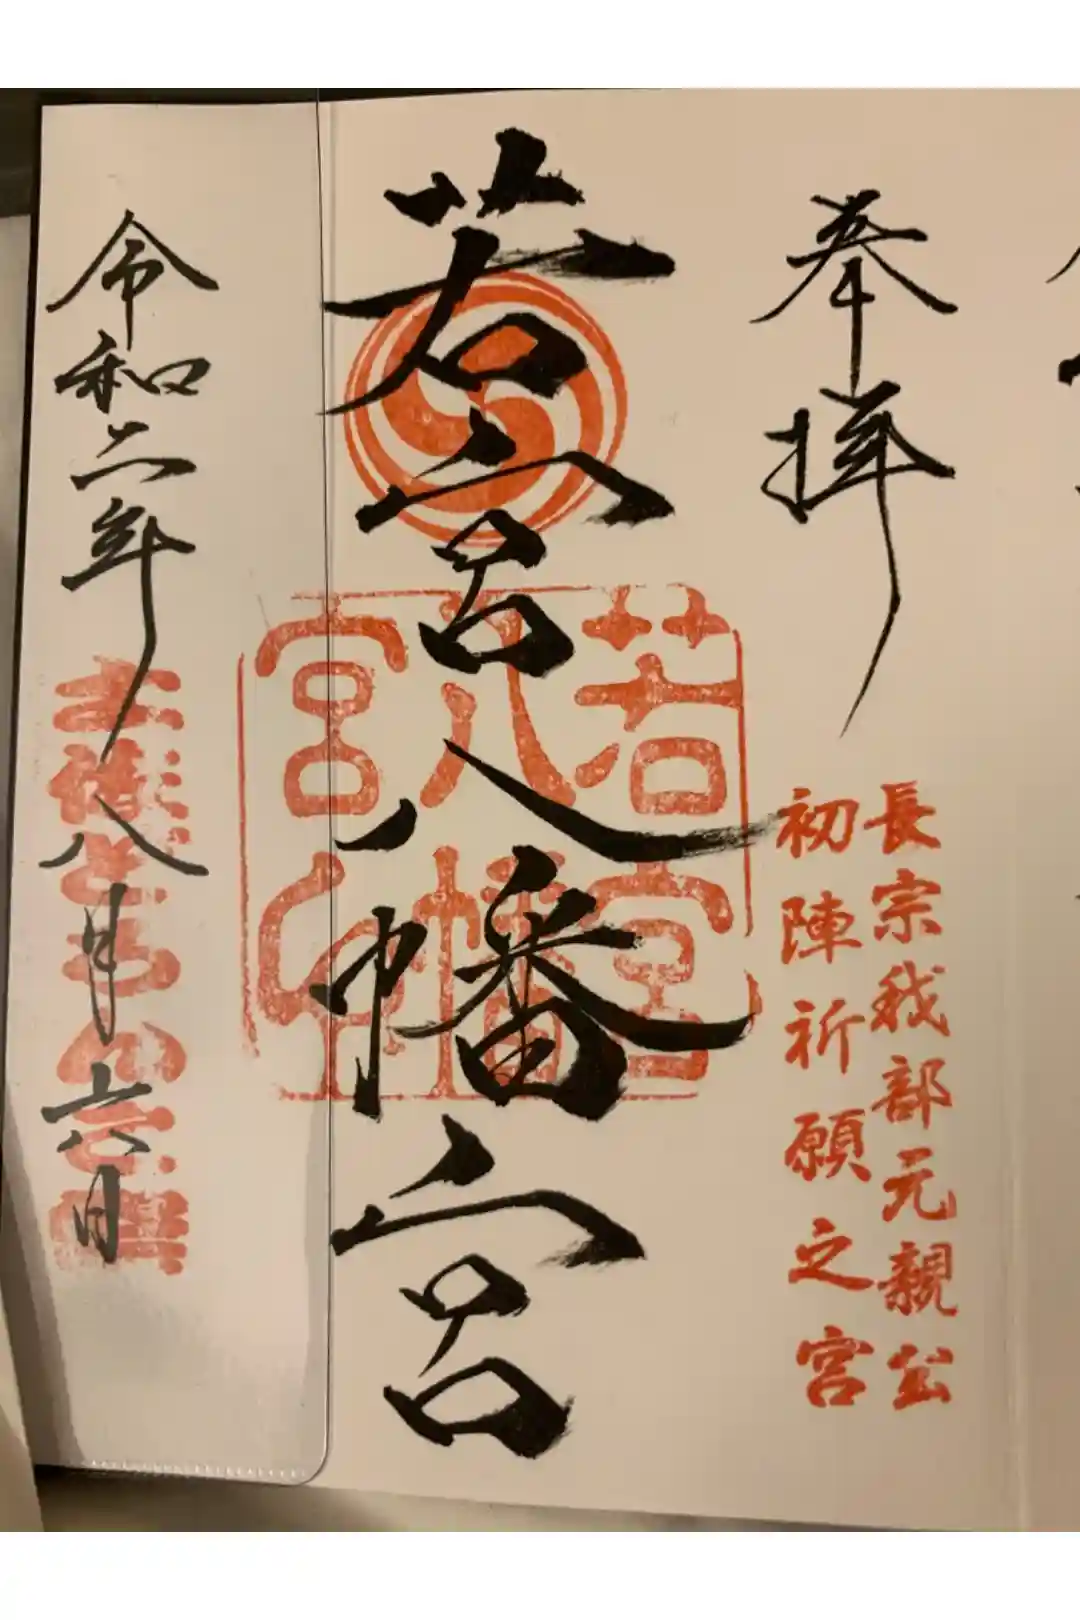 奉拝
長宗我部元親公
初陣祈願之宮
若宮八幡宮
若宮
八幡
宮
令和二年八月六日